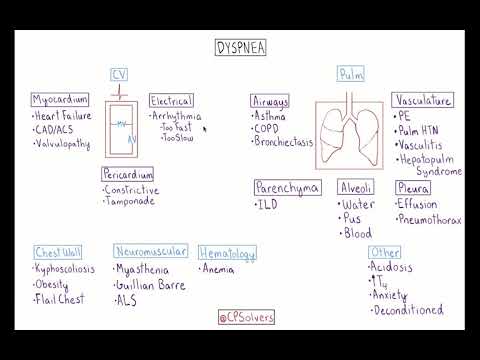 DYSPNEA
CV
Pulm
Myocardium
•Heart Failure
•CAD/ACS
•Valvulopathy
MV
AV
Electrical
•Arrhythmia
-Too Fast
-Too Slow
Pericardium
•Constrictive
•Tamponade
Airways
•Asthma
•COPD
•Bronchiectasis
Vasculature
•PE
•Pulm HTN
•Vasculitis
•Hepatopulm
Syndrome
Parenchyma
•ILD
Alveoli
•Water
•Pus
•Blood
Pleura
•Effusion
•Pneumothorax
Chest Wall
•Kyphoscoliosis
•Obesity
•Flail Chest
Neuromuscular
•Myasthenia
•Guillian Barre
•ALS
Hematology
•Anemia
Other
•Acidosis
•↑T4
•Anxiety
•Deconditioned
@CPSolvers